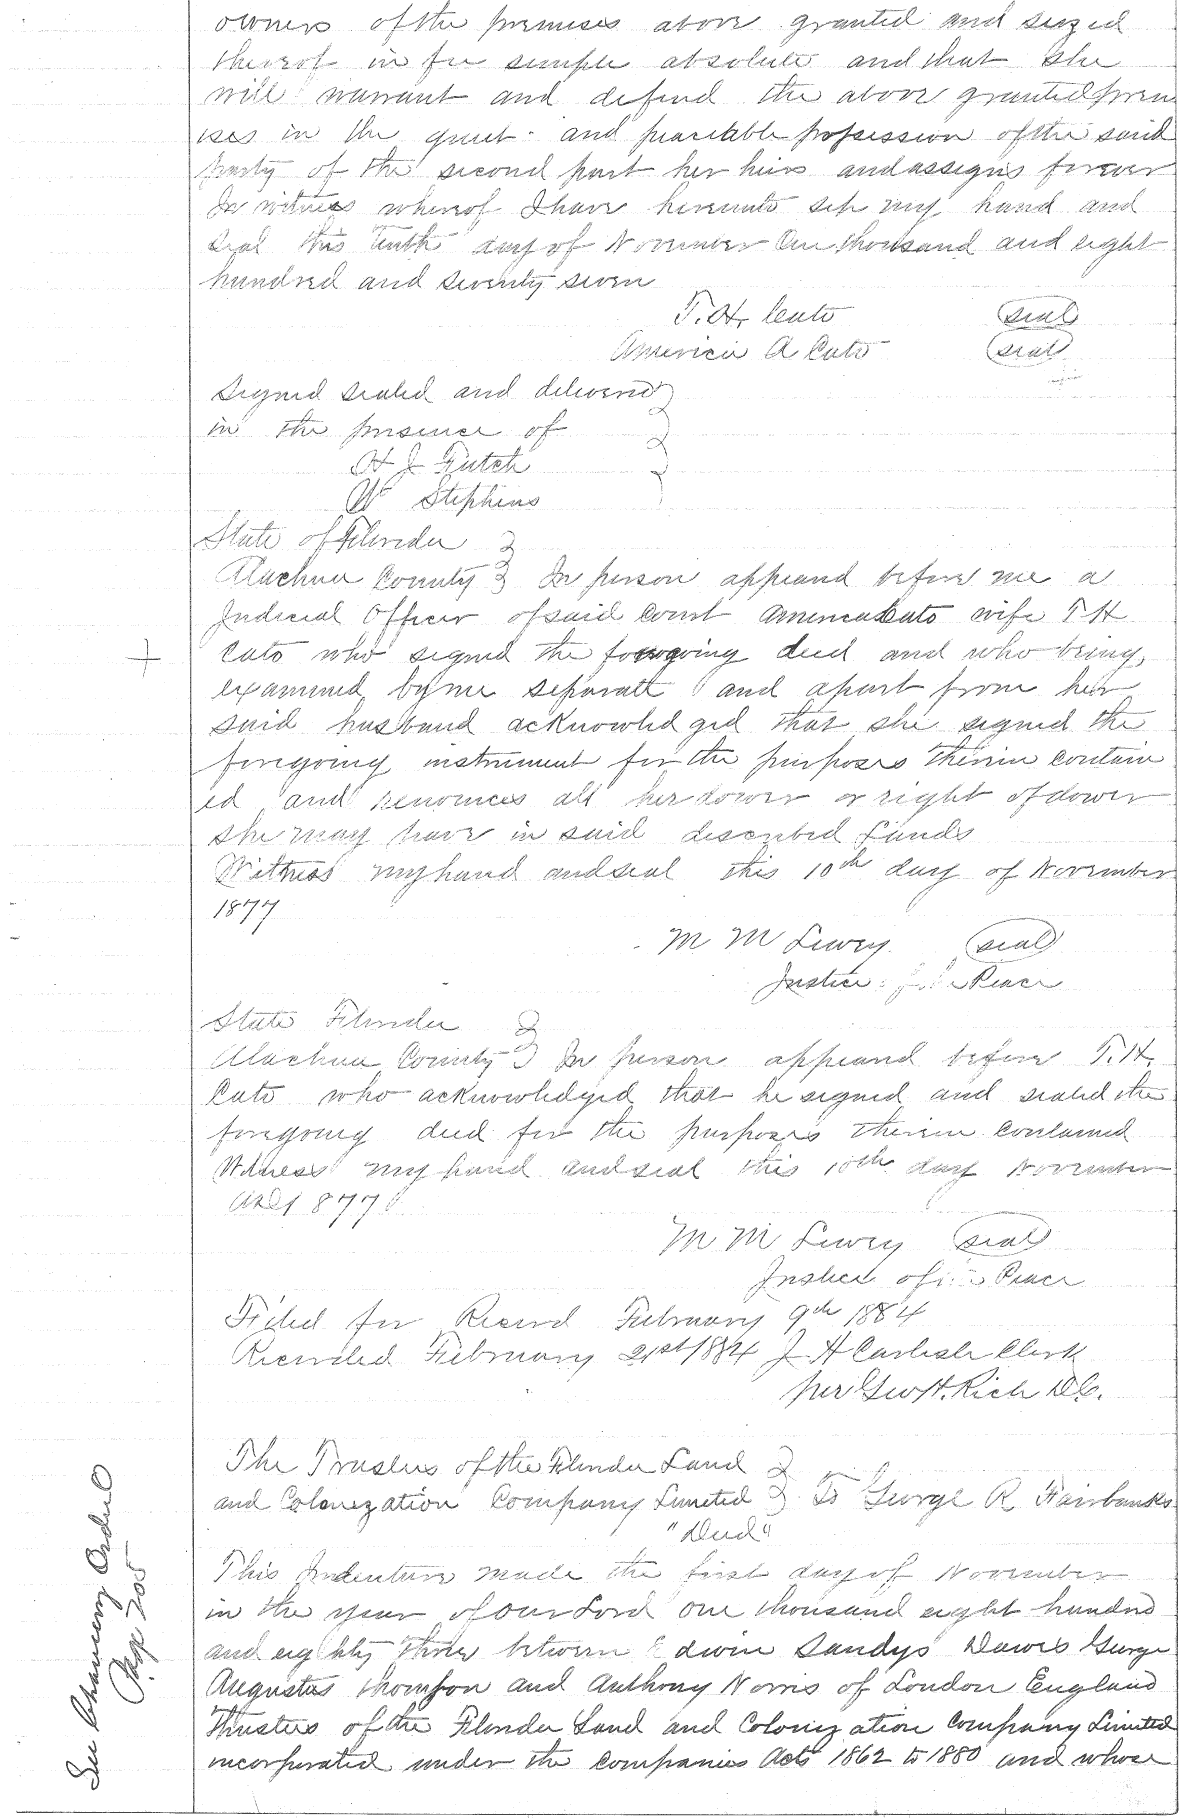 owners of the premises above granted and seized
thereof in fee simple absolute and that she
will warrant and defend the above granted prem
ises in the quiet and peaceable possession of the said
party of the second part her heirs and assigns forever
In witness whereof I have hereunto set my hand and
seal this Tenth day of November One thousand and eight
hundred and seventy seven
T. H. Cato seal
America A Cato seal
Signed sealed and delivered
in the presence of
H J Futch
W Stephens
State of Florida
Alachua County In person appeard before me a
Judicial Officer of said Court America Cato wife T H
Cato who signed the foregoing deed and who being
examined by me separate and apart from her
said husband acknowledged that she signed the
foregoing instrument for the purposes therein contain
ed and renounces all her dower or right of dower
she may have in said described Lands
Witness my hand and seal this 10th day of November
1877
M M Lewey seal
Justice of the Peace
State Florida
Alachua County In person appeard before T. H.
Cato who acknowledged that he signed and sealed the
foregoing deed for the purposes therein contained
Witness my hand and seal this 10th day November
AD 1877
M M Lewey seal
Justice of the Peace
Filed for Record February 9th 1884
Recorded February 21st 1884 J H Carlisle Clerk
per Geo H. Rich D.C.
The Trustees of the Florida Land
and Colonization Company Limited To George R Fairbanks
"Deed"
This Indenture made the first day of November
in the year of our Lord one thousand eight hundred
and eighty three between Edwin Sandys Dawes George
Augustus Thomson and Anthony Norris of London England
Trustees of the Florida Land and Colonization Company Limited
incorporated under the Companies Acts 1862 to 1880 and whose
See Chancery Order
Page 205